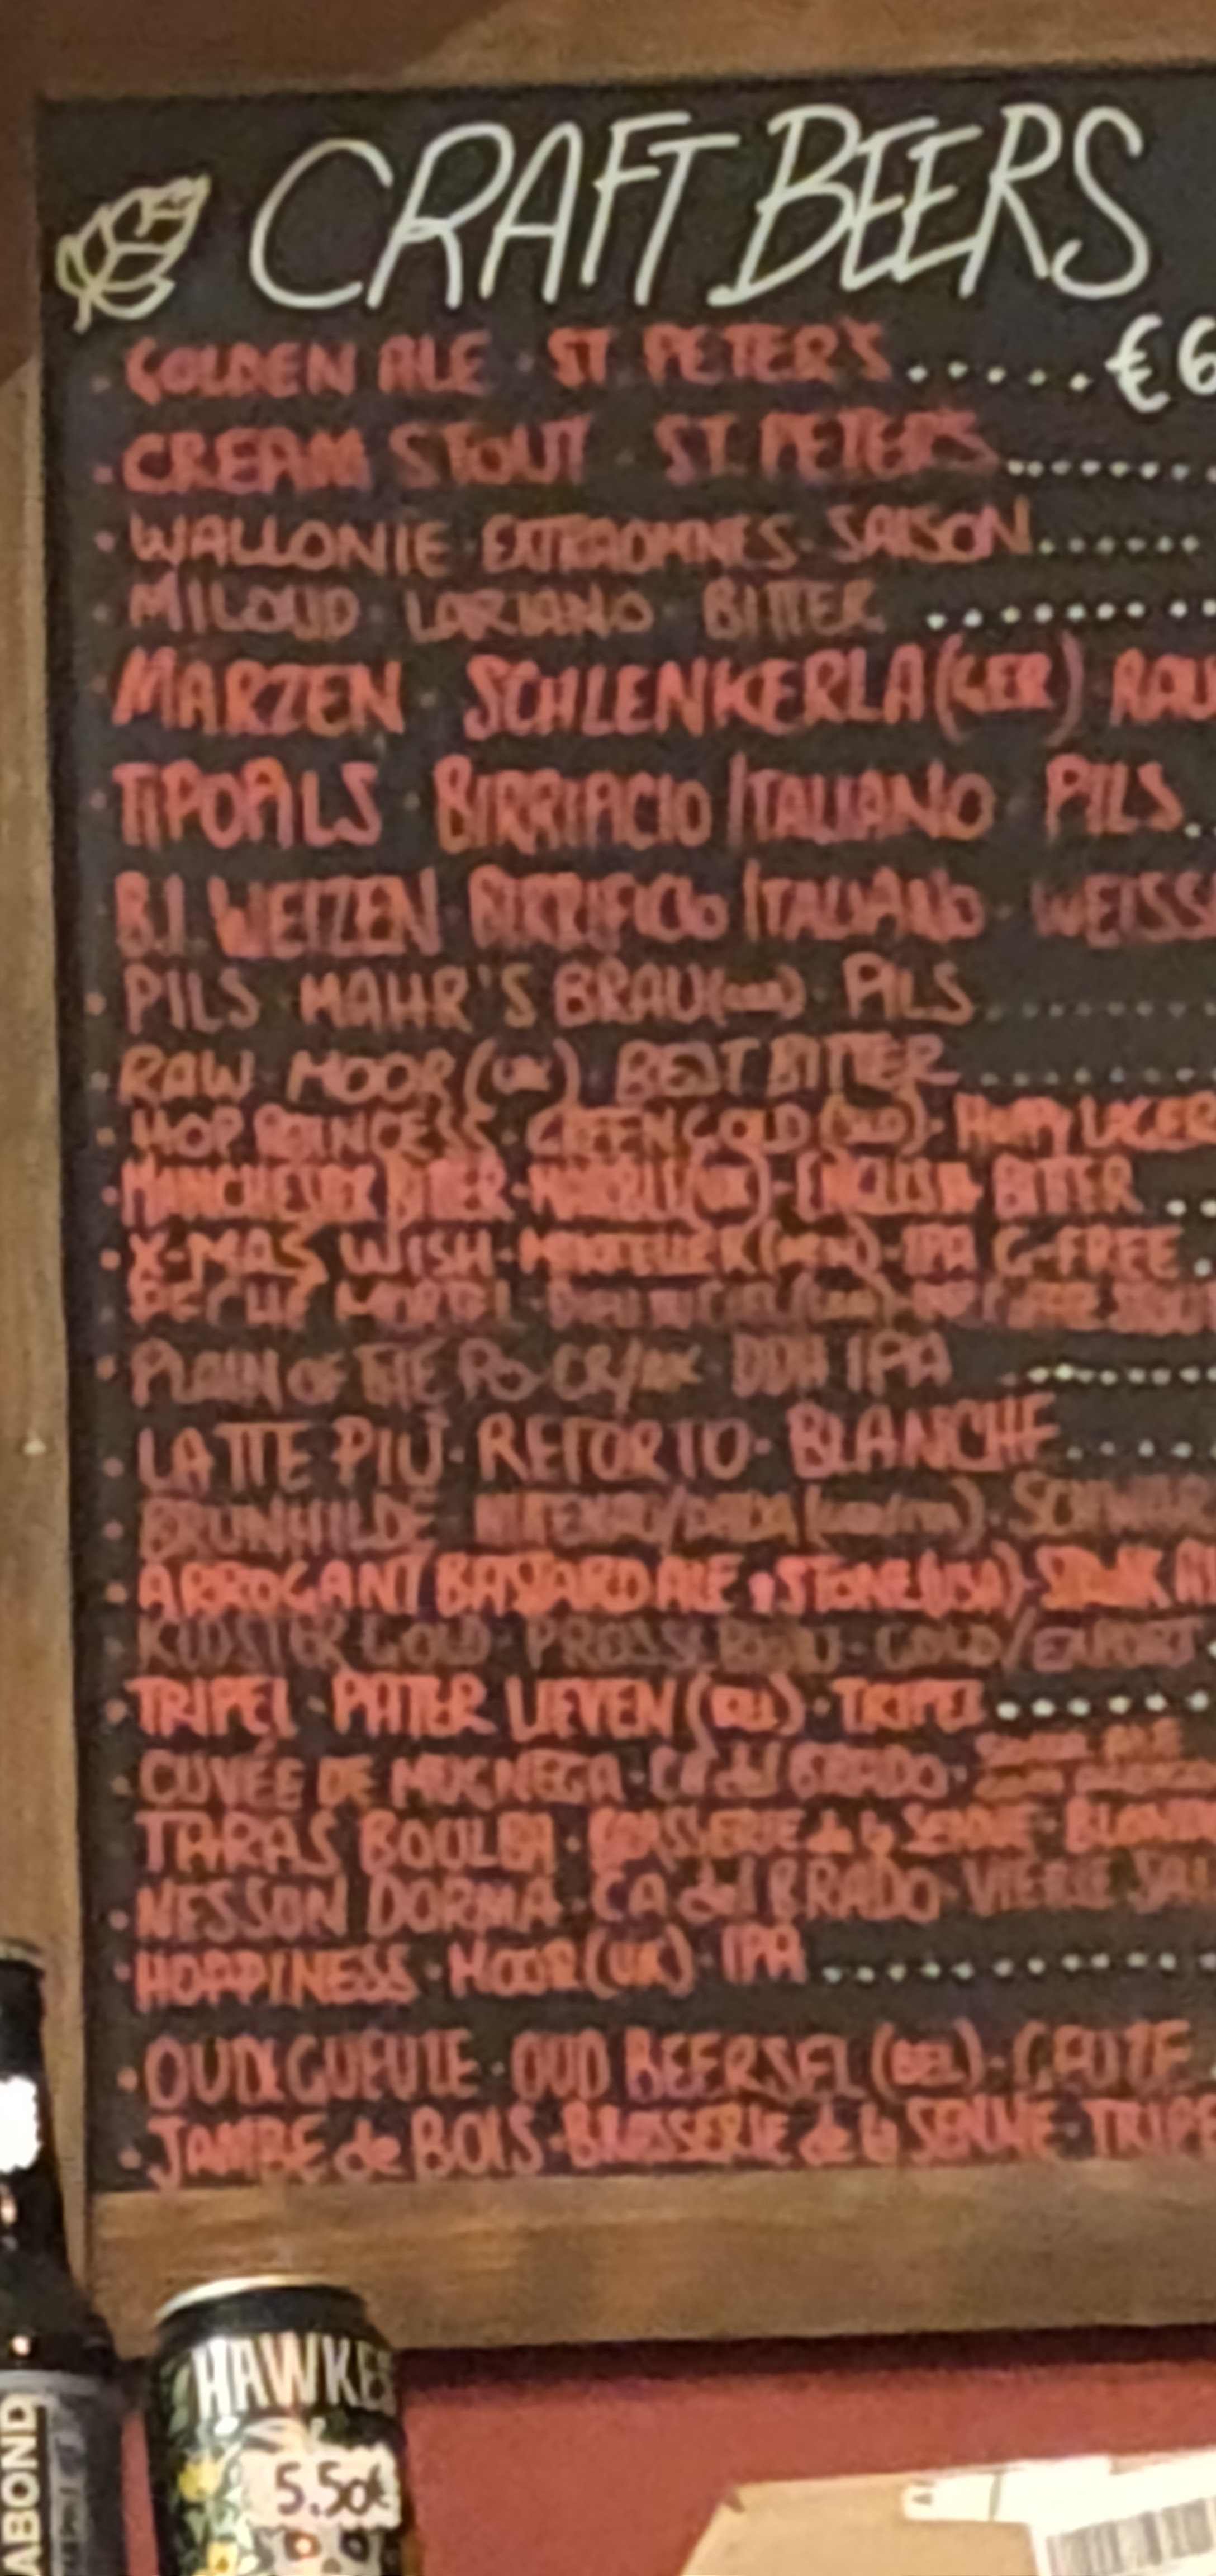 CRAFT BEERS
GOLDEN ALE · ST PETER'S ..... €6
· CREAM STOUT · ST. PETER'S .......
· WALLONIE · EXTRAOMNES · SAISON ......
· MILOUD · LARIANO · BITTER ........
· MARZEN · SCHLENKERLA (GER) RAU
· TIPOPILS · BIRRIFICIO ITALIANO · PILS..
B.I. WEIZEN · BIRRIFICIO ITALIANO · WEISS
· PILS · MAHR'S BRAU · PILS ........
· RAW · MOOR (UK) · BEST BITTER ........
· HOP PRINCESS · GREEN GOLD · HOPPY LAGER
· MANCHESTER BITTER · MARBLE (UK) · ENGLISH BITTER ..
· X-MAS WISH · MIKKELLER (DEN) · IPA G-FREE .
· PECHE MORTEL
· PLAIN OF THE PO · DDH IPA .......
· LATTE PIÙ · RETORTO · BLANCHE ....
· BRUNHILDE
· ARROGANT BASTARD ALE · STONE (USA)
KLOSTER GOLD · GOLD/EXPORT
· TRIPEL · PATER LIEVEN (BEL) · TRIPEL ......
· CUVÉE DE · CA del BRADO ·
TARAS BOULBA · BRASSERIE de la SENNE · BLOND
· NESSUN DORMA · CA del BRADO
· HOPPINESS · MOOR (UK) · IPA ...........
· OUDE GUEUZE · OUD BEERSEL (BEL) · GEUZE .
· JAMBE de BOIS · BRASSERIE de la SENNE · TRIPE
HAWKES
5.50€
ABOND